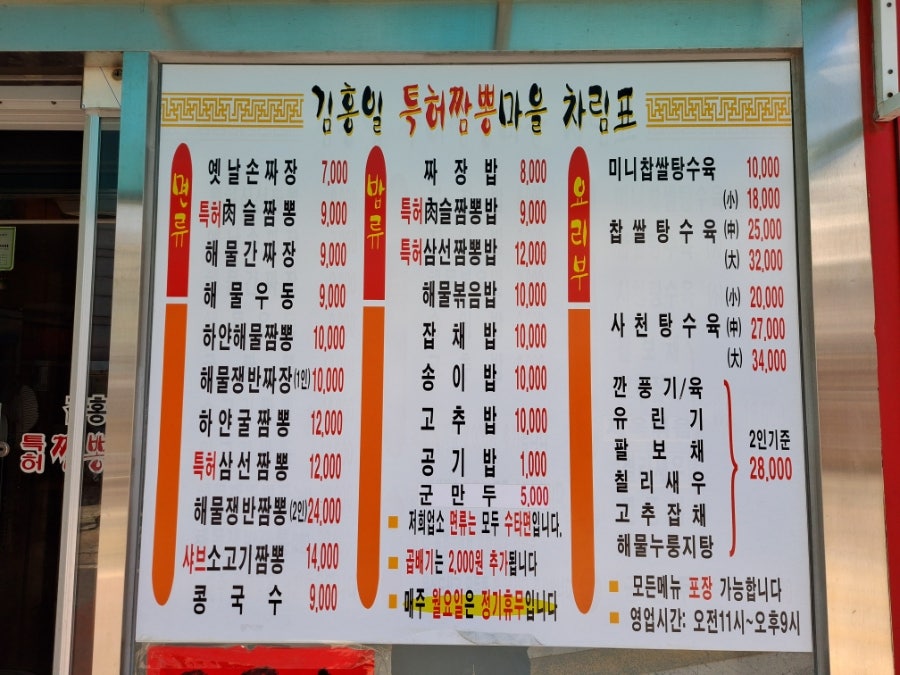 김홍일 특허짬뽕마을 차림표
면류
옛날손짜장 7,000
특허肉슬짬뽕 9,000
해물간짜장 9,000
해물우동 9,000
하얀해물짬뽕 10,000
해물쟁반짜장(1인) 10,000
하얀굴짬뽕 12,000
특허삼선짬뽕 12,000
해물쟁반짬뽕(2인) 24,000
샤브소고기짬뽕 14,000
콩국수 9,000
밥류
짜장밥 8,000
특허肉슬짬뽕밥 9,000
특허삼선짬뽕밥 12,000
해물볶음밥 10,000
잡채밥 10,000
송이밥 10,000
고추밥 10,000
공기밥 1,000
군만두 5,000
저희업소 면류는 모두 수타면입니다.
곱배기는 2,000원 추가됩니다
매주 월요일은 정기휴무입니다
요리부
미니찹쌀탕수육 10,000
(小) 18,000
찹쌀탕수육 (中) 25,000
(大) 32,000
(小) 20,000
사천탕수육 (中) 27,000
(大) 34,000
깐풍기/육
유린기
팔보채
칠리새우
고추잡채
해물누룽지탕
2인기준
28,000
모든메뉴 포장 가능합니다
영업시간: 오전11시~오후9시
홍
특허짬뽕